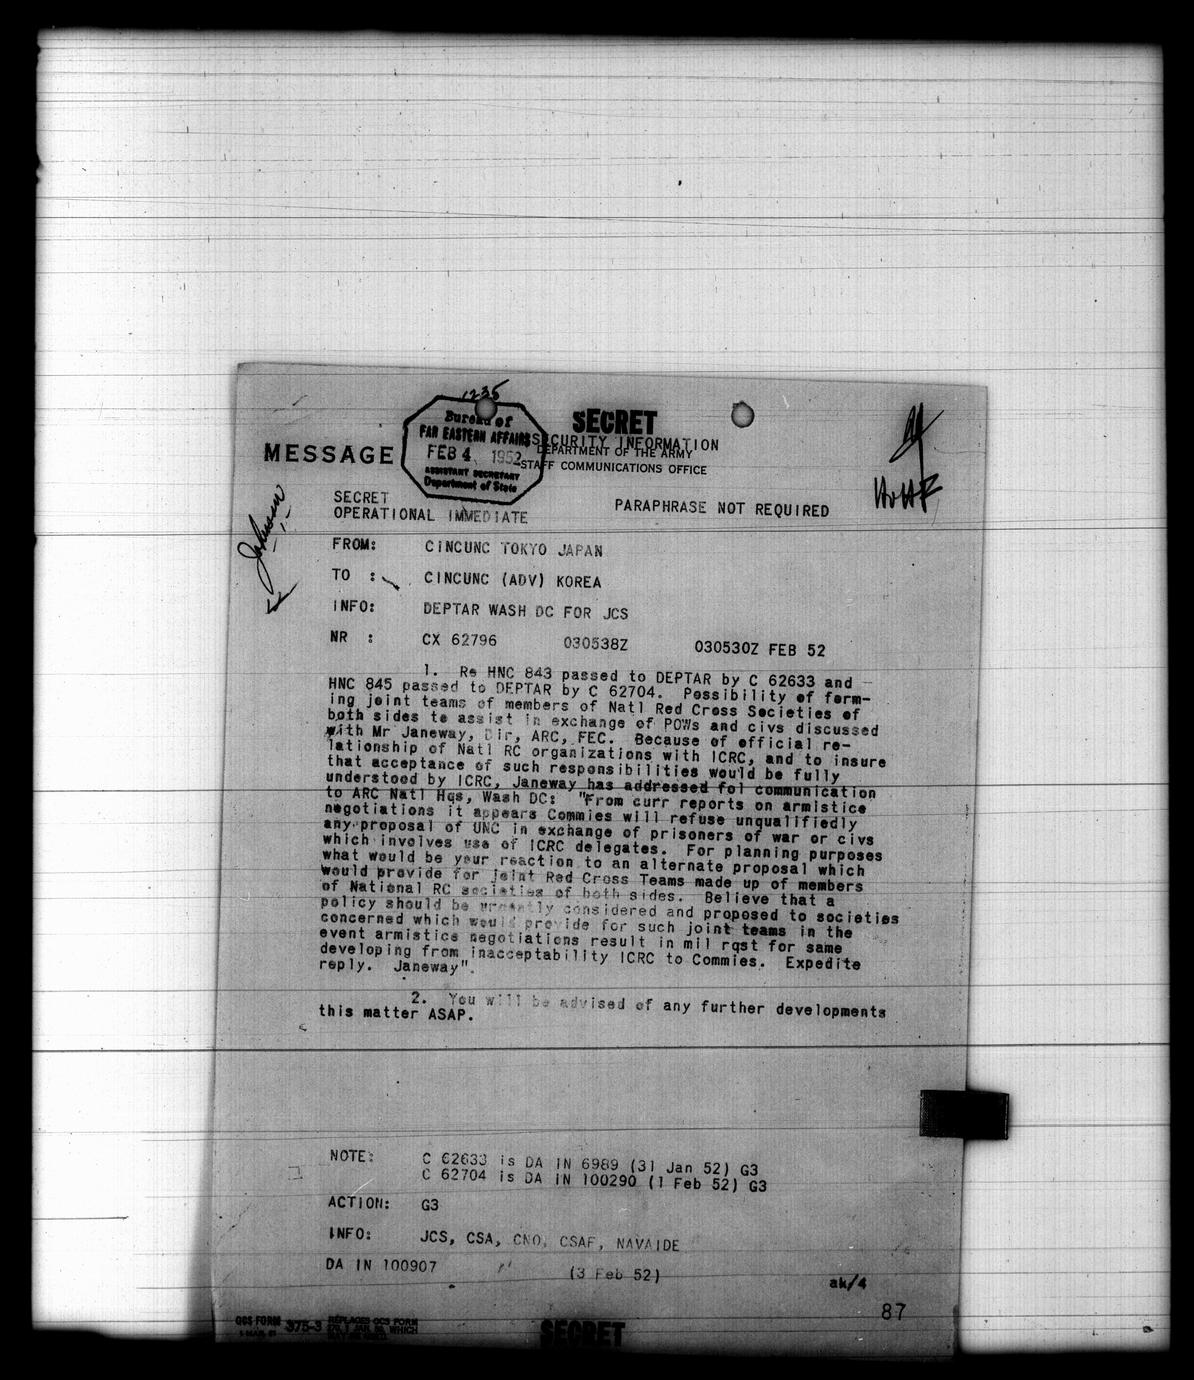 1235
SECRET
Bureau of
FAR EASTERN AFFAIRS
FEB 4 1952
ASSISTANT SECRETARY
Department of State
SECURITY INFORMATION
DEPARTMENT OF THE ARMY
STAFF COMMUNICATIONS OFFICE
MESSAGE
Johnson
SECRET
OPERATIONAL IMMEDIATE
PARAPHRASE NOT REQUIRED
FROM: CINCUNC TOKYO JAPAN
TO : CINCUNC (ADV) KOREA
INFO: DEPTAR WASH DC FOR JCS
NR : CX 62796 030538Z 030530Z FEB 52
1. Re HNC 843 passed to DEPTAR by C 62633 and
HNC 845 passed to DEPTAR by C 62704. Possibility of form-
ing joint teams of members of Natl Red Cross Societies of
both sides to assist in exchange of POWs and civs discussed
with Mr Janeway, Dir, ARC, FEC. Because of official re-
lationship of Natl RC organizations with ICRC, and to insure
that acceptance of such responsibilities would be fully
understood by ICRC, Janeway has addressed fol communication
to ARC Natl Hqs, Wash DC: "From curr reports on armistice
negotiations it appears Commies will refuse unqualifiedly
any proposal of UNC in exchange of prisoners of war or civs
which involves use of ICRC delegates. For planning purposes
what would be your reaction to an alternate proposal which
would provide for joint Red Cross Teams made up of members
of National RC societies of both sides. Believe that a
policy should be urgently considered and proposed to societies
concerned which would provide for such joint teams in the
event armistice negotiations result in mil rqst for same
developing from inacceptability ICRC to Commies. Expedite
reply. Janeway".
2. You will be advised of any further developments
this matter ASAP.
NOTE: C 62633 is DA IN 6989 (31 Jan 52) G3
C 62704 is DA IN 100290 (1 Feb 52) G3
ACTION: G3
INFO: JCS, CSA, CNO, CSAF, NAVAIDE
DA IN 100907 (3 Feb 52)
ak/4
87
OCS FORM 375-3 REPLACES OCS FORM
WHICH
SECRET